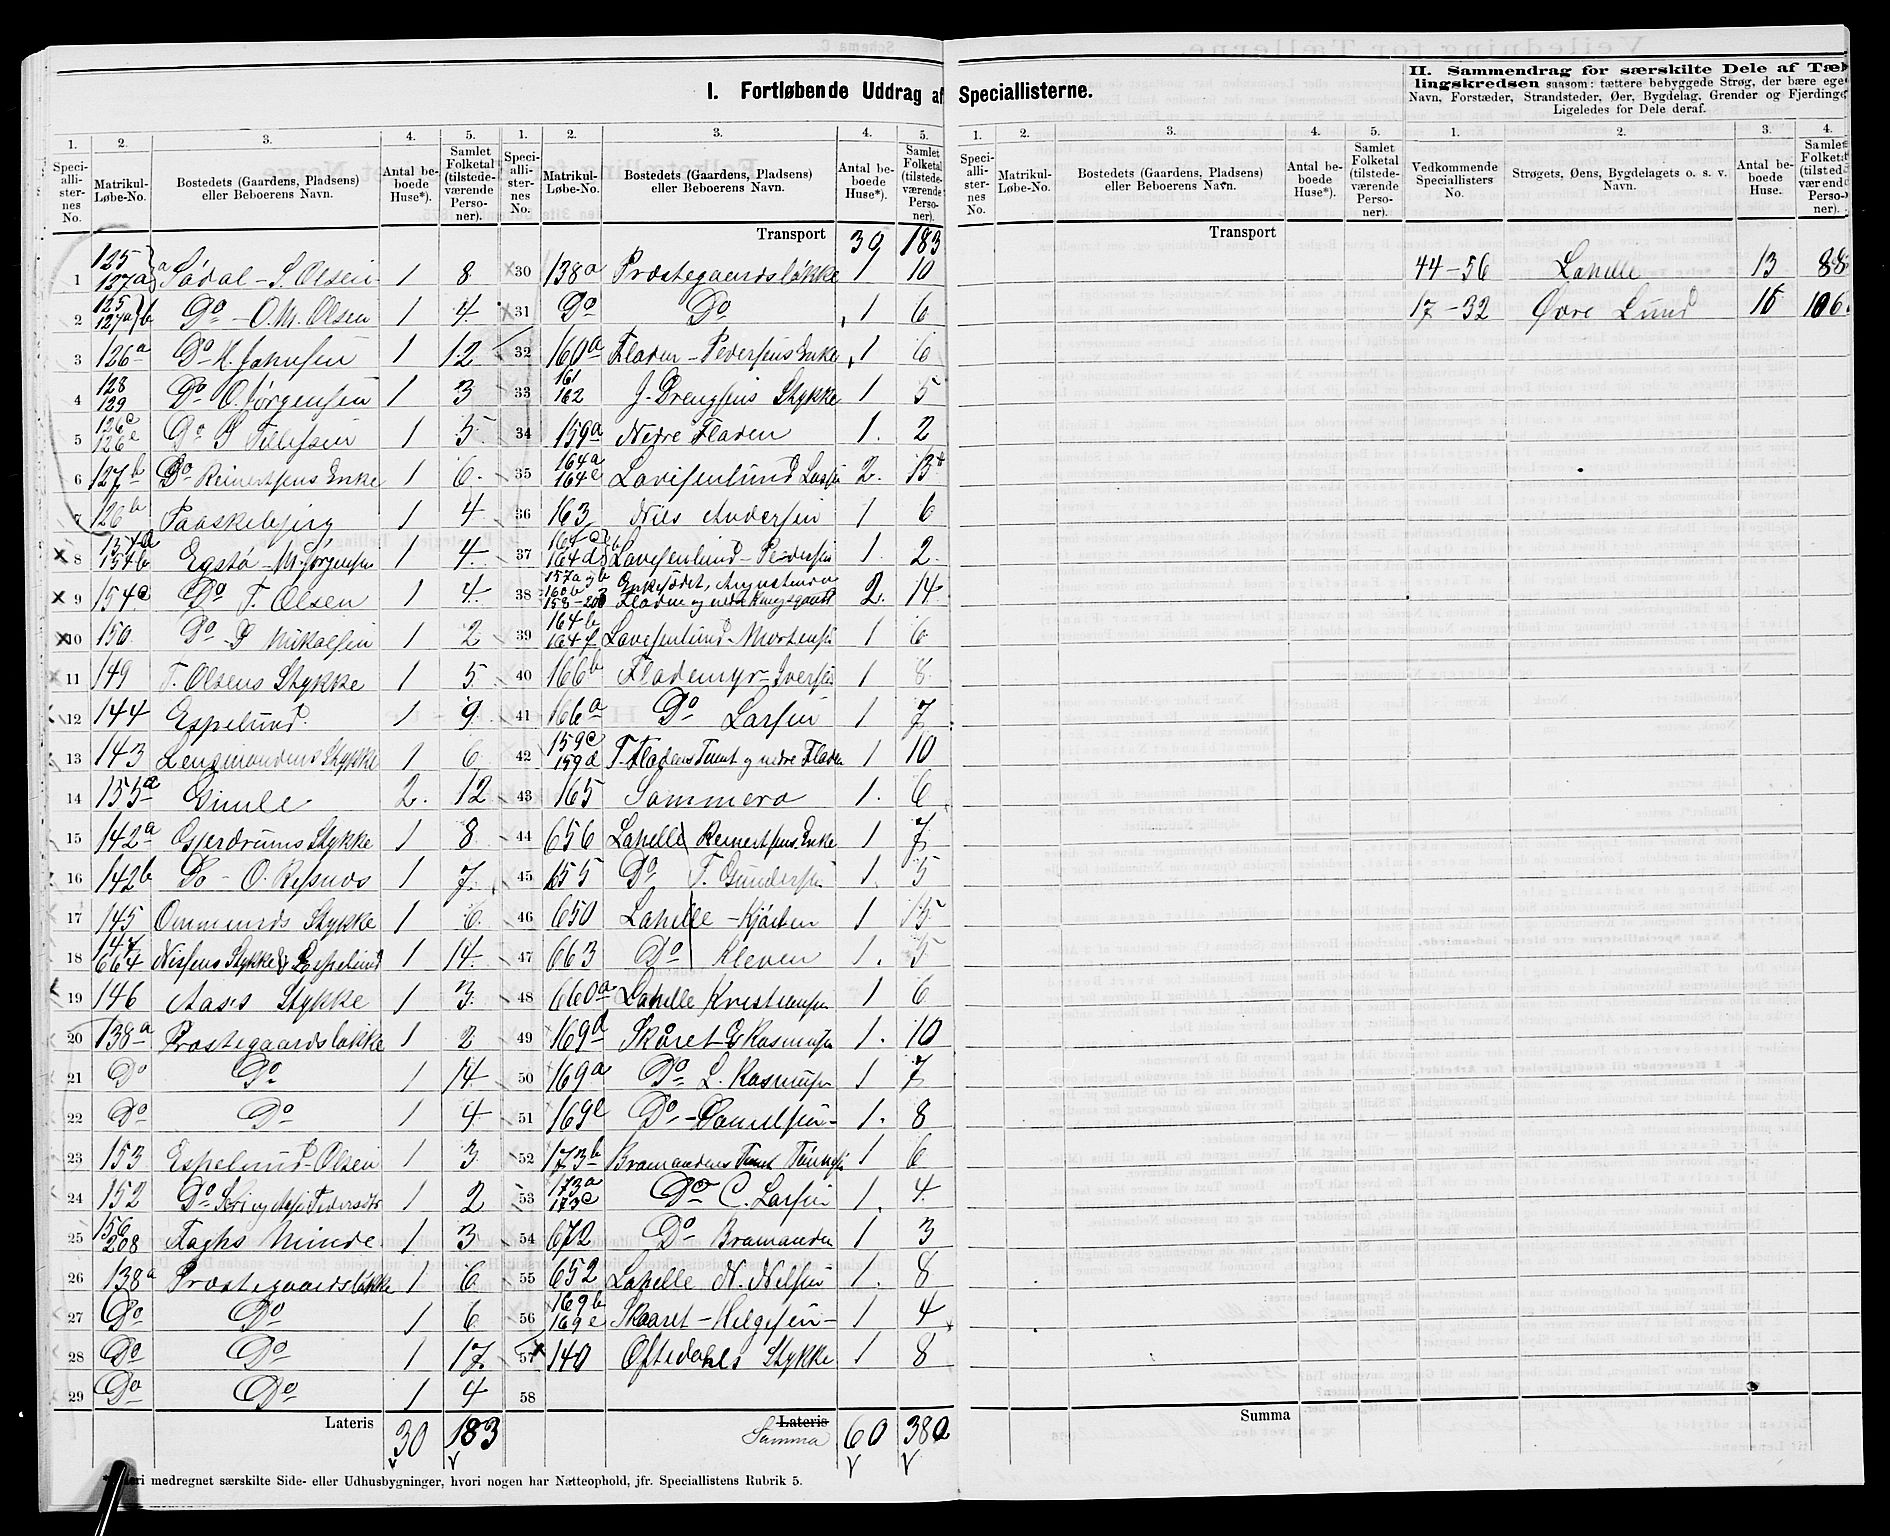 I. Fortløbende Uddrag af Speciallisterne.
II. Sammendrag for særskilte Dele af Tæl-
lingskredsen saasom: tættere bebyggede Strøg, der bære eget
Navn, Forstæder, Strandsteder, Øer, Bygdelag, Grender og Fjerdinge
Ligeledes for Dele deraf.
1. 2. 3. 4. 5. 1. 2. 3. 4. 5. 1. 2. 3. 4. 5. 1. 2. 3. 4.
Speci-alli-ster-nes No. Matrikul-Løbe-No. Bostedets (Gaardens, Pladsens) eller Beboerens Navn. Antal be-boede Huse*). Samlet Folketal (tilstede-værende Perso-ner).
Speci-alli-ster-nes No. Matrikul-Løbe-No. Bostedets (Gaardens, Pladsens) eller Beboerens Navn. Antal be-boede Huse*). Samlet Folketal (tilstede-værende Perso-ner).
Speci-alli-ster-nes No. Matrikul-Løbe-No. Bostedets (Gaardens, Pladsens) eller Beboerens Navn. Antal be-boede Huse*). Samlet Folketal (tilstede-værende Perso-ner).
Vedkommende Speciallisters No. Strøgets, Øens, Bygdelagets o. s. v. Navn. Antal be-boede Huse. Samlet Folketal (tilstede-værende Perso-ner).
1 125 127a a Sódal - S. Olsen 1 8
2 125 127a b Do - O. M. Olsen 1 4
3 126a Do H. Johnsen 1 12
4 128 129 Do O. Jørgensen 1 3
5 126c 126e Do S Tellefsen 1 5
6 127b Do Reinertsens Enke 1 6
7 126b Paaskebjerg 1 4
8 154a 154b Egstø - M. Jørgensen 1 4
9 154c Do T. Olsen 1 4
10 150 Do - P Mikalsen 1 2
11 149 T. Olsens Stykke 1 5
12 144 Espelund 1 9
13 143 Lensmandens Stykke 1 6
14 155a Gimle 2 12
15 142a Gjerdrums Stykke 1 8
16 142b Do - O. Refsnæs 1 7
17 145 Ommunds Stykke 1 6
18 147 664 Nissens Stykke & Espelund 1 14
19 146 Aas's Stykke 1 3
20 138a Præstegaardsløkke 1 2
21 Do Do 1 14
22 Do Do 1 4
23 153 Espelund - Olsen 1 3
24 152 Do 1 2
25 156 208 Fughs Minde 1 3
26 138a Præstegaardsløkke 1 6
27 Do Do 1 6
28 Do Do 1 17
29 Do Do 1 4
Lateris 30 183
Transport 30 183
30 138a Præstegaardsløkke 1 10
31 Do Do 1 6
32 160a Fladen - Pedersens Enke 1 6
33 161 162 J. Drengsens Stykke 1 5
34 159a Nedre Fladen 1 2
35 164a 164e Lavisenlund Larsen 2 13
36 163 Nils Andersen 1 6
37 164c 164d Lavisenlund - Pedersen 1 2
38 157a og b 160b 158-208 Enkesædet, Augustenara Fladen og nedre Kongsgaard 2 14
39 164b 164f Lavisenlund - Mortensen 1 6
40 166b Flademyr - Iversen 1 8
41 166a Do Larsen 1 7
42 159c 159d T. Fladens Tomt og nedre Fladen 1 10
43 165 Sommero 1 6
44 656 Lahelle Reinertsens Enke 1 7
45 655 Do T. Gundersen 1 5
46 650 Lahelle - Kjørten 1 15
47 663 Do Kleven 1 5
48 660a Lahelle Kristensen 1 6
49 169d Skåret G Rasmusen 1 10
50 169a Do L. Rasmusen 1 7
51 169c Do - Danielsen 1 8
52 173b Bramandens Tomt Tønnesen 1 6
53 173a 173c Do C. Larsen 1 4
54 672 Do Bramanden 1 3
55 652 Lahelle N. Nilsen 1 8
56 169b 169e Skaaret - Helgesen 1 4
57 140 Oftedahls Stykke 1 8
58
Lateris Summa 60 380
Transport
Summa
44-56 Lahelle 13 88
17-32 Øvre Lund 16 106
*) Heri medregnet særskilte Side- eller Udhusbygninger, hvori nogen har Natteophold, jfr. Speciallistens Rubrik 5.